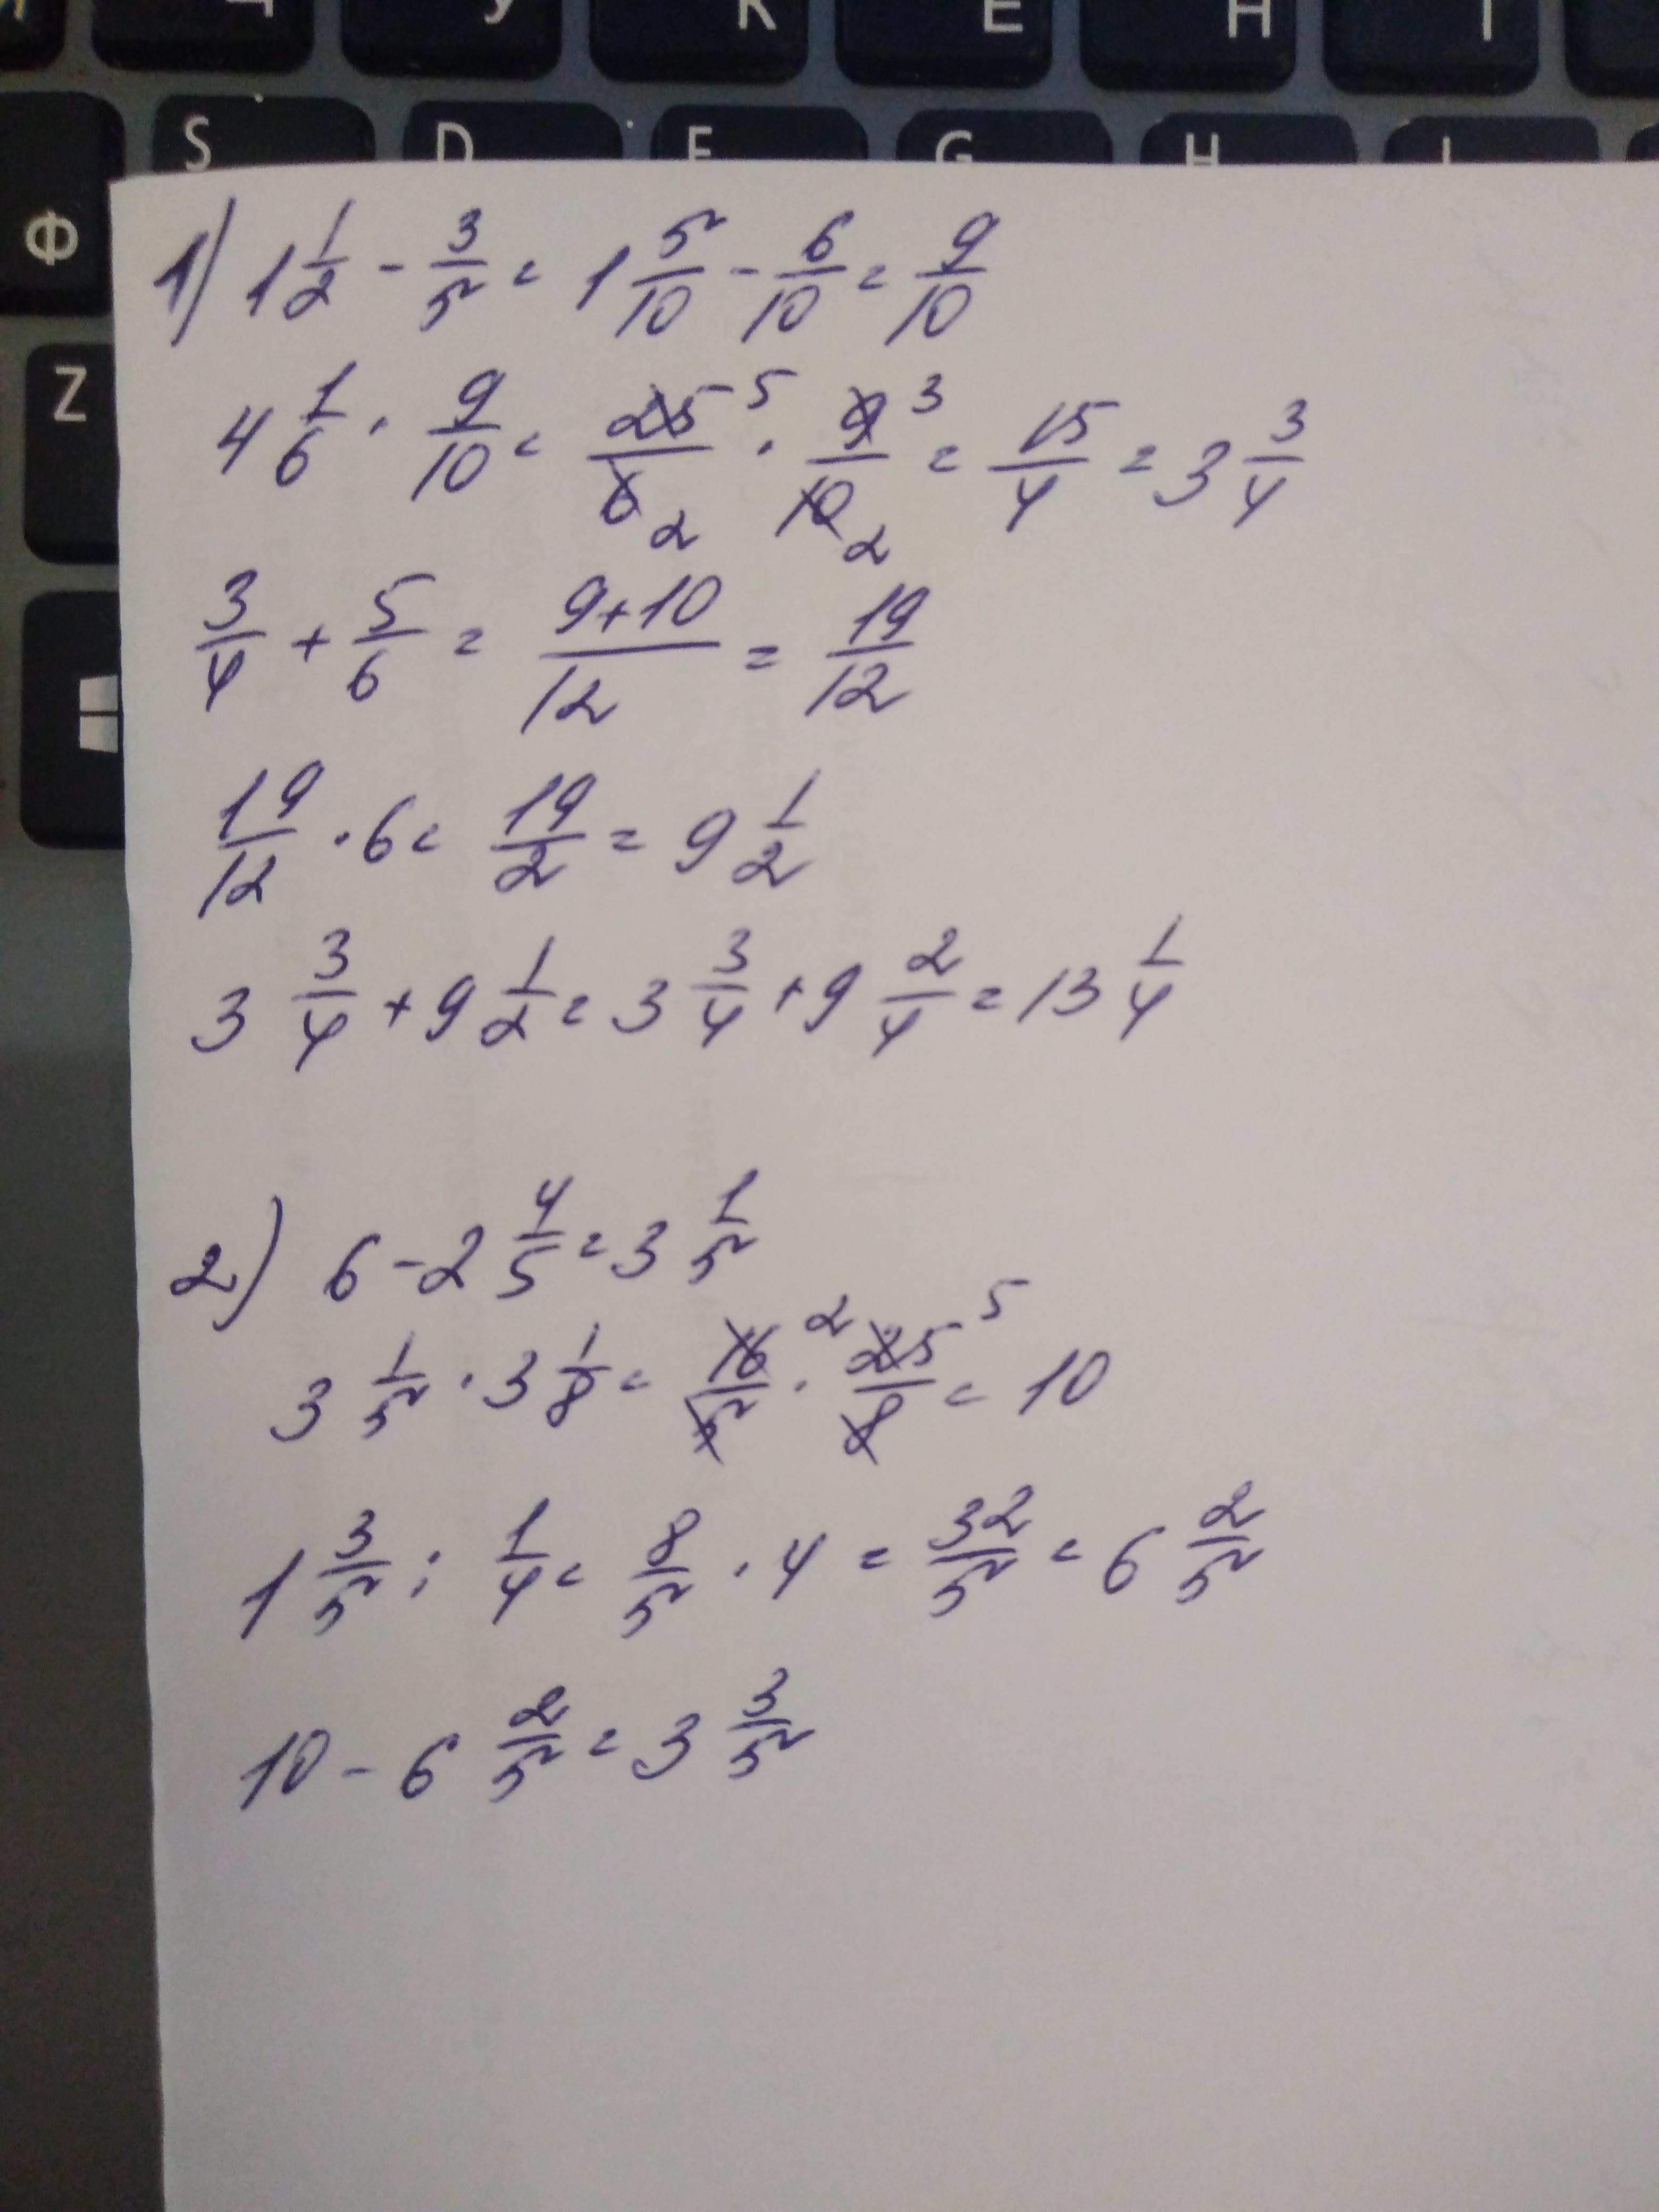 У К Е Н
S D F G H
Ф
Z
1) 1 1/2 - 3/5 = 1 5/10 - 6/10 = 9/10
4 1/6 · 9/10 = 25/6 5 2 · 9/10 3 2 = 15/4 = 3 3/4
3/4 + 5/6 = 9+10/12 = 19/12
19/12 · 6 = 19/2 = 9 1/2
3 3/4 + 9 1/2 = 3 3/4 + 9 2/4 = 13 1/4
2) 6 - 2 4/5 = 3 1/5
3 1/5 · 3 1/8 = 16/5 2 · 25/8 5 = 10
1 3/5 : 1/4 = 8/5 · 4 = 32/5 = 6 2/5
10 - 6 2/5 = 3 3/5